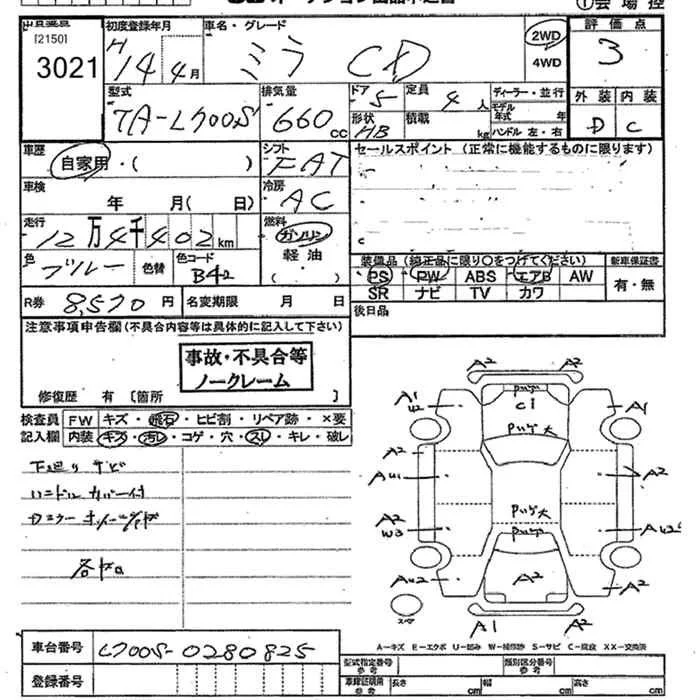 [2150]
3021
初度登録年月
H14年4月
車名・グレード
ミラ CD
2WD
4WD
評価点
3
外装 内装
D C
型式
TA-L700S
排気量
660 cc
ドア
5
定員
4人
形状
HB
積載
kg
ディーラー・並行
モデル年式 年
ハンドル 左・右
車歴
自家用・( )
シフト
FAT
セールスポイント (正常に機能するものに限ります)
車検
年 月( 日)
冷房
AC
走行
12万4千402km
燃料
ガソリン
軽油
( )
色
ブルー
色替
色コード
B42
装備品 (純正品に限り○をつけてください)
新車保証書
PS PW ABS エアB AW
SR ナビ TV カワ
有・無
R券 8,570円
名変期限 月 日
後日品
注意事項申告欄(不具合内容等は具体的に記入して下さい)
事故・不具合等
ノークレーム
修復歴 有 [箇所 ]
検査員記入欄
FW キズ・飛石・ヒビ割・リペア跡・×要
内装 キズ・汚レ・コゲ・穴・スレ・キレ・破レ
下廻りサビ
ハンドルカバー付
各キロ
A2 A2
C1
A1
A1
A2
A2
A2
A2
A2
A2
A1 A2
スペア
A-キズ E-エクボ U-凹み W-補修跡 S-サビ C-腐食 XX-交換済
車台番号
L700S-0280825
登録番号
型式指定番号
参考
類別区分番号
参考
車庫証明用
参考
長さ cm
幅 cm
高さ cm